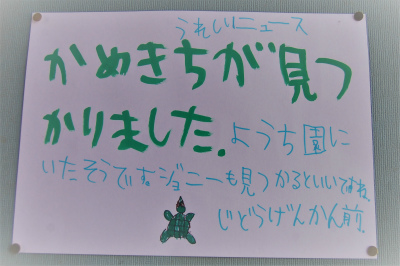 うれしいニュース
かめきちが見つ
かりました.ようち園に
いたそうです。ジョニーも見つかるといいですね。
じどうげんかん前。